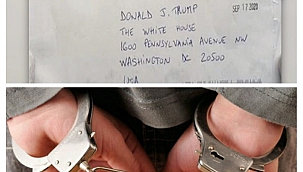 DONALD J. TRUMP
SEP 17 2020
THE WHITE HOUSE
1600 PENNSYLVANIA AVENUE NW
WASHINGTON DC 20500
USA